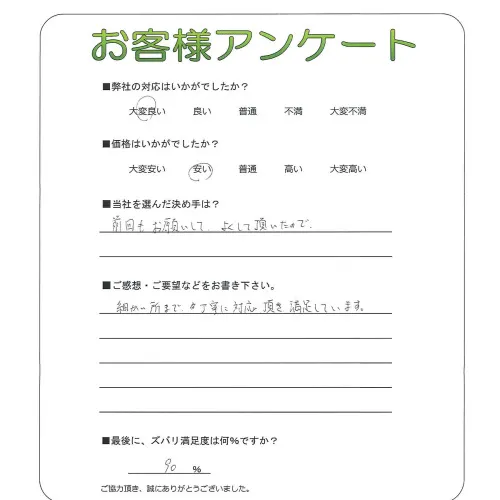 お客様アンケート
■弊社の対応はいかがでしたか？
大変良い 良い 普通 不満 大変不満
■価格はいかがでしたか？
大変安い 安い 普通 高い 大変高い
■当社を選んだ決め手は？
前回もお願いして、よくして頂いたので。
■ご感想・ご要望などをお書き下さい。
細かい所まで丁寧に対応頂き満足しています。
■最後に、ズバリ満足度は何%ですか？
90 %
ご協力頂き、誠にありがとうございました。